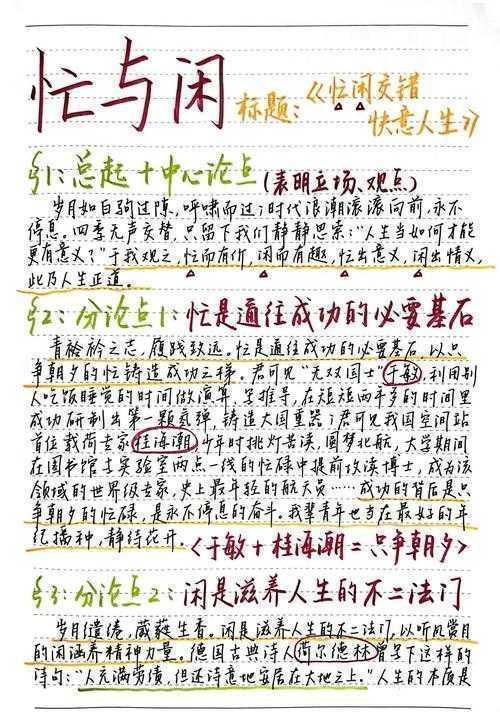 忙与闲
标题：《忙闲交错
快意人生》
§1：总起＋中心论点（表明立场、观点）
岁月如白驹过隙，呼啸而过；时代浪潮滚滚向前，永不
停息。四季无声交替，只留下我们静静思索：“人生当如何才能
更有意义？”于我观之，忙而有价，闲而有趣，忙出意义，闲出情义，
此乃人生正道。
§2：分论点1：忙是通往成功的必要基石
青衿衿之志，履践致远。忙是通往成功的必要基石，以只
争朝夕的忙铸造成功之梯。君可见“无双国士”于敏，利用别
人吃饭睡觉的时间做演算、学推导，在短短两年多的时间里
成功研制出第一颗氢弹，铸造大国重器；君可见我国空间站
首位载荷专家桂海潮少年时挑灯苦读，圆梦北航，大学期间
在图书馆与实验室两点一线的忙碌中提前攻读博士，成为该
领域的世界级专家，史上最年轻的航天员……成功的背后是只
争朝夕的忙碌，是永不停息的奋斗。我辈青年也当在最好的年
纪播种，静待花开。〈于敏＋桂海潮＝只争朝夕〉
§3：分论点2：闲是滋养人生的不二法门
岁月缱绻，葳蕤生香。闲是滋养人生的不二法门，以听风赏月
的闲涵养精神力量。德国古典诗人荷尔德林曾写下这样的
诗句：“人充满劳绩，但还诗意地安居在大地之上。”人生的本质是